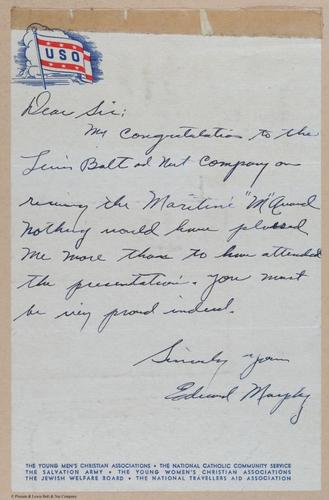 USO
Dear Sir;
My Congratulation to the
Lewis Bolt and Nut Company on
reciving the Maritime "M" Award
Nothing would have pleased
me more than to have attended
the presentation. You must
be very proud indeed.
Sincerly yours
Edward Murphy
THE YOUNG MEN'S CHRISTIAN ASSOCIATIONS • THE NATIONAL CATHOLIC COMMUNITY SERVICE
THE SALVATION ARMY • THE YOUNG WOMEN'S CHRISTIAN ASSOCIATIONS
THE JEWISH WELFARE BOARD • THE NATIONAL TRAVELLERS AID ASSOCIATION
© Pioneer & Lewis Bolt & Nut Company